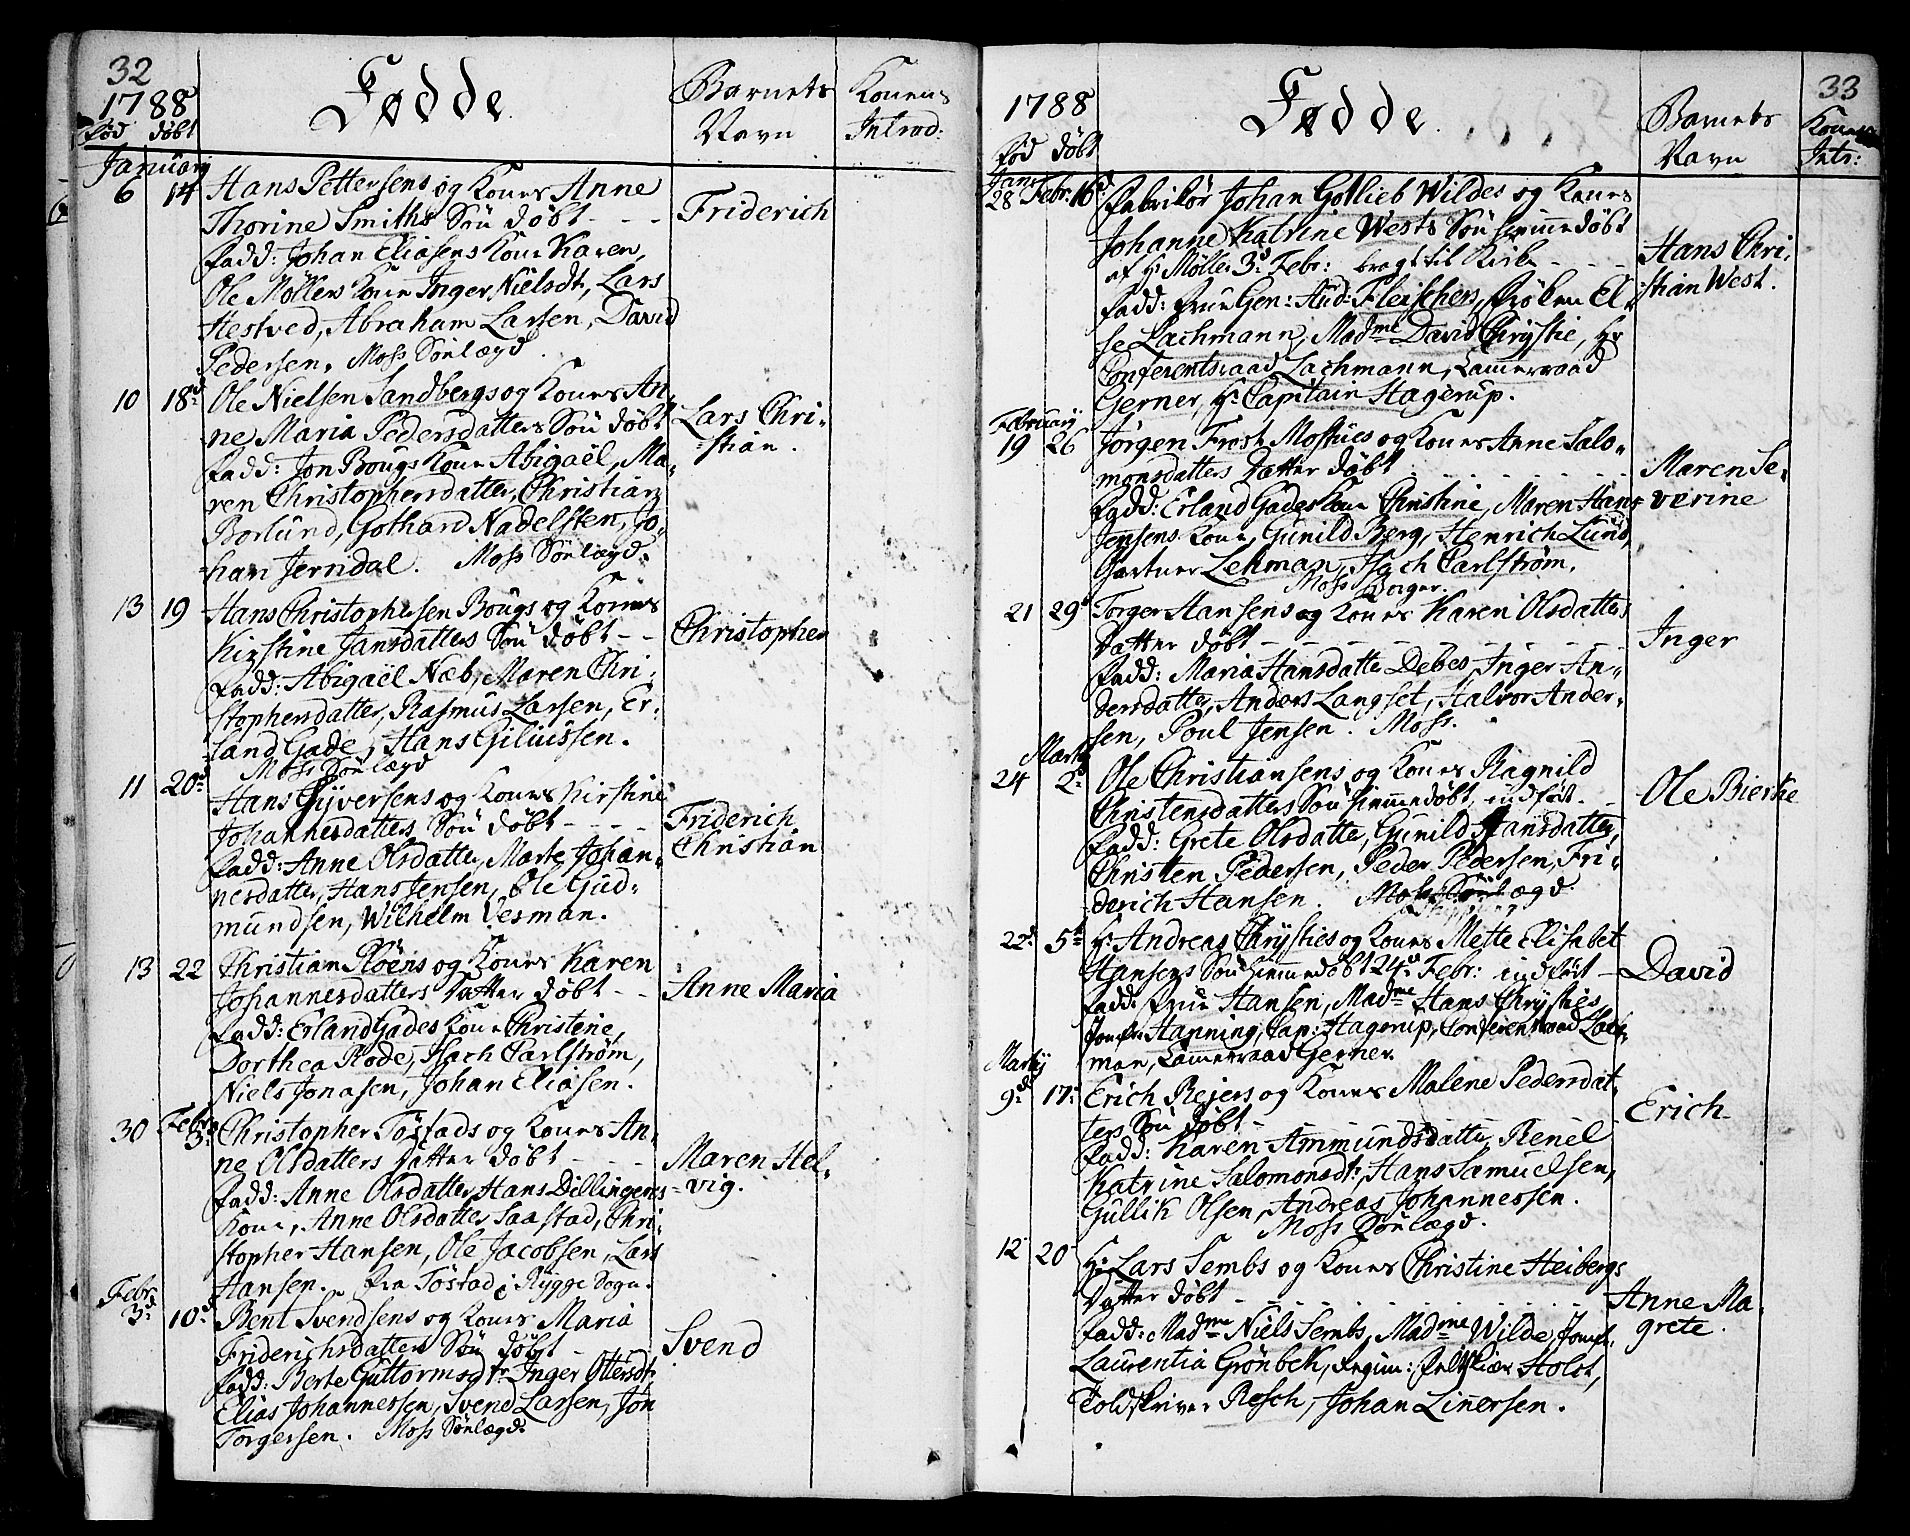 32
1788
Fødde
Barnets
Navn
Konens
Introd:
Fød döbt
January
6 14 Hans Pettersens og Kones Anne
Thorine Smiths Sön döbt - - -
Friderich
Fadd: Johan Eliasens Kone Karen,
Ole Möllers Kone Inger Nielsdt, Lars
Hestved, Abraham Larsen, David
Pedersen. Moss Sönlægd.
10 18d Ole Nielsen Sandbergs og Kones An-
ne Maria Pedersdatters Sön döbt
Lars Chri-
stian.
Fadd: Jon Bougs Kone Abigaël, Ma-
ren Christophersdatter, Christian
Borlund, Gothard Nadelsten, Jo-
han Jerndal. Moss Sönlægd.
13 19 Hans Christophersen Bougs og Kones
Kirstine Jansdatters Sön döbt - -
Christopher
Fadd: Abigaël Næb, Maren Chri-
stophersdatter, Rasmus Larsen, Er-
land Gade, Hans Giluissen.
Moss Sönlægd
11 20d Hans Gyversens og Kones Kirstine
Johannesdatters Sön döbt - - - -
Friderich
Christian
Fadd: Anne Olsdatter, Marte Johan-
nesdatter, Hans Jensen, Ole Gud-
mundsen, Wilhelm Vesman.
13 22 Christian Plöens og Kones Karen
Johannesdatters Datter döbt - -
Anne Maria
Fadd: Erland Gades Kone Christine,
Dorthea Rode, Isach Carlstrøm,
Niels Jonasen, Johan Eliasen.
30 Febr. 3d Christopher Töstads og Kones An-
ne Olsdatters Datter döbt - - -
Maren Hel-
vig.
Fadd: Anne Olsdatter, Hans Dillingens
Kone, Anne Olsdatter Saastad, Chri-
stopher Hansen, Ole Jacobsen, Lars
Hansen. fra Töstad i Rygge Sogn.
Febr.
3d 10d Bent Svendsens og Kones Maria
Friderichsdatters Sön döbt -
Svend
Fadd: Berte Guttormsdt: Inger Ottersdt:
Elias Johannessen, Svend Larsen, Jon
Torgersen. Moss Sönlægd.
33
1788
Fødde.
Barnets
Navn
Konens
Intr:
Fød döbt
Jan:
28 Febr. 16d Fabrikör Johan Gotlieb Wildes og Kones
Johanne Katrine Wests Sön hiemmedöbt
af Hr Møller 3d Febr: bragt til Kirke - - -
Hans Chri-
stian West.
Fadd: Frue Gen: Aud: Fleischers, Frøken El-
se Lachmann, Madme David Chrystie, Hr
Conferentsraad Lachmann, Cammerraad
Gerner, Hr Capitain Hagerup.
February
19 26 Jörgen Frost Mostues og Kones Anne Salo-
monsdatters Datter döbt - - - - - -
Maren Se-
verine
Fadd: Erland Gades Kone Christine, Maren Hans
Jensens Kone, Gunild Berg, Henrich Lund,
Gartner Lehman, Isach Carlstrøm.
Moss Borger.
21 29d Torger Hansens og Kones Karen Olsdatters
Datter döbt - - - - - -
Inger
Fadd: Maria Hansdatter Debes, Inger An-
dersdatter, Anders Langset, Halvor Ander-
sen, Poul Jensen. Moss.
Martij
24 2d Ole Christiansens og Kones Ragnild
Christensdatters Sön hiemmedöbt, indfört. -
Ole Bierke
Fadd: Grete Olsdatter, Gunild Hansdatter,
Christen Pedersen, Peder Pedersen, Fri-
derich Hansen. Moss Sönlægd.
22d 5te Hr Andreas Chrysties og Kones Mette Elisabet
Hansens Sön hiemmedöbt 24d Febr: indfört -
David
Fadd: Frue Hansen, Madme Hans Chrysties,
Jomfr: Hanning, Cap: Hagerup, Conferentsraad Lach-
man, Cammerraad Gerner.
Martij
9d 17: Erich Rejers og Kones Malene Pedersdat-
ters Sön döbt -
Erich
Fadd: Karen Ammundsdatter, Renel
Katrine Salomonsdt:, Hans Samuelsen,
Gullik Olsen, Andreas Johannessen.
Moss Sönlægd.
12 20 Hr Lars Sembs og Kones Christine Heibergs
Datter döbt - - - - - -
Anne Ma-
grete.
Fadd: Madme Niels Sembs, Madme Wilde, Jomfr.
Laurentia Grönbek, Regim: Feltskiær Holst,
Toldskriver Resch, Johan Linersen.